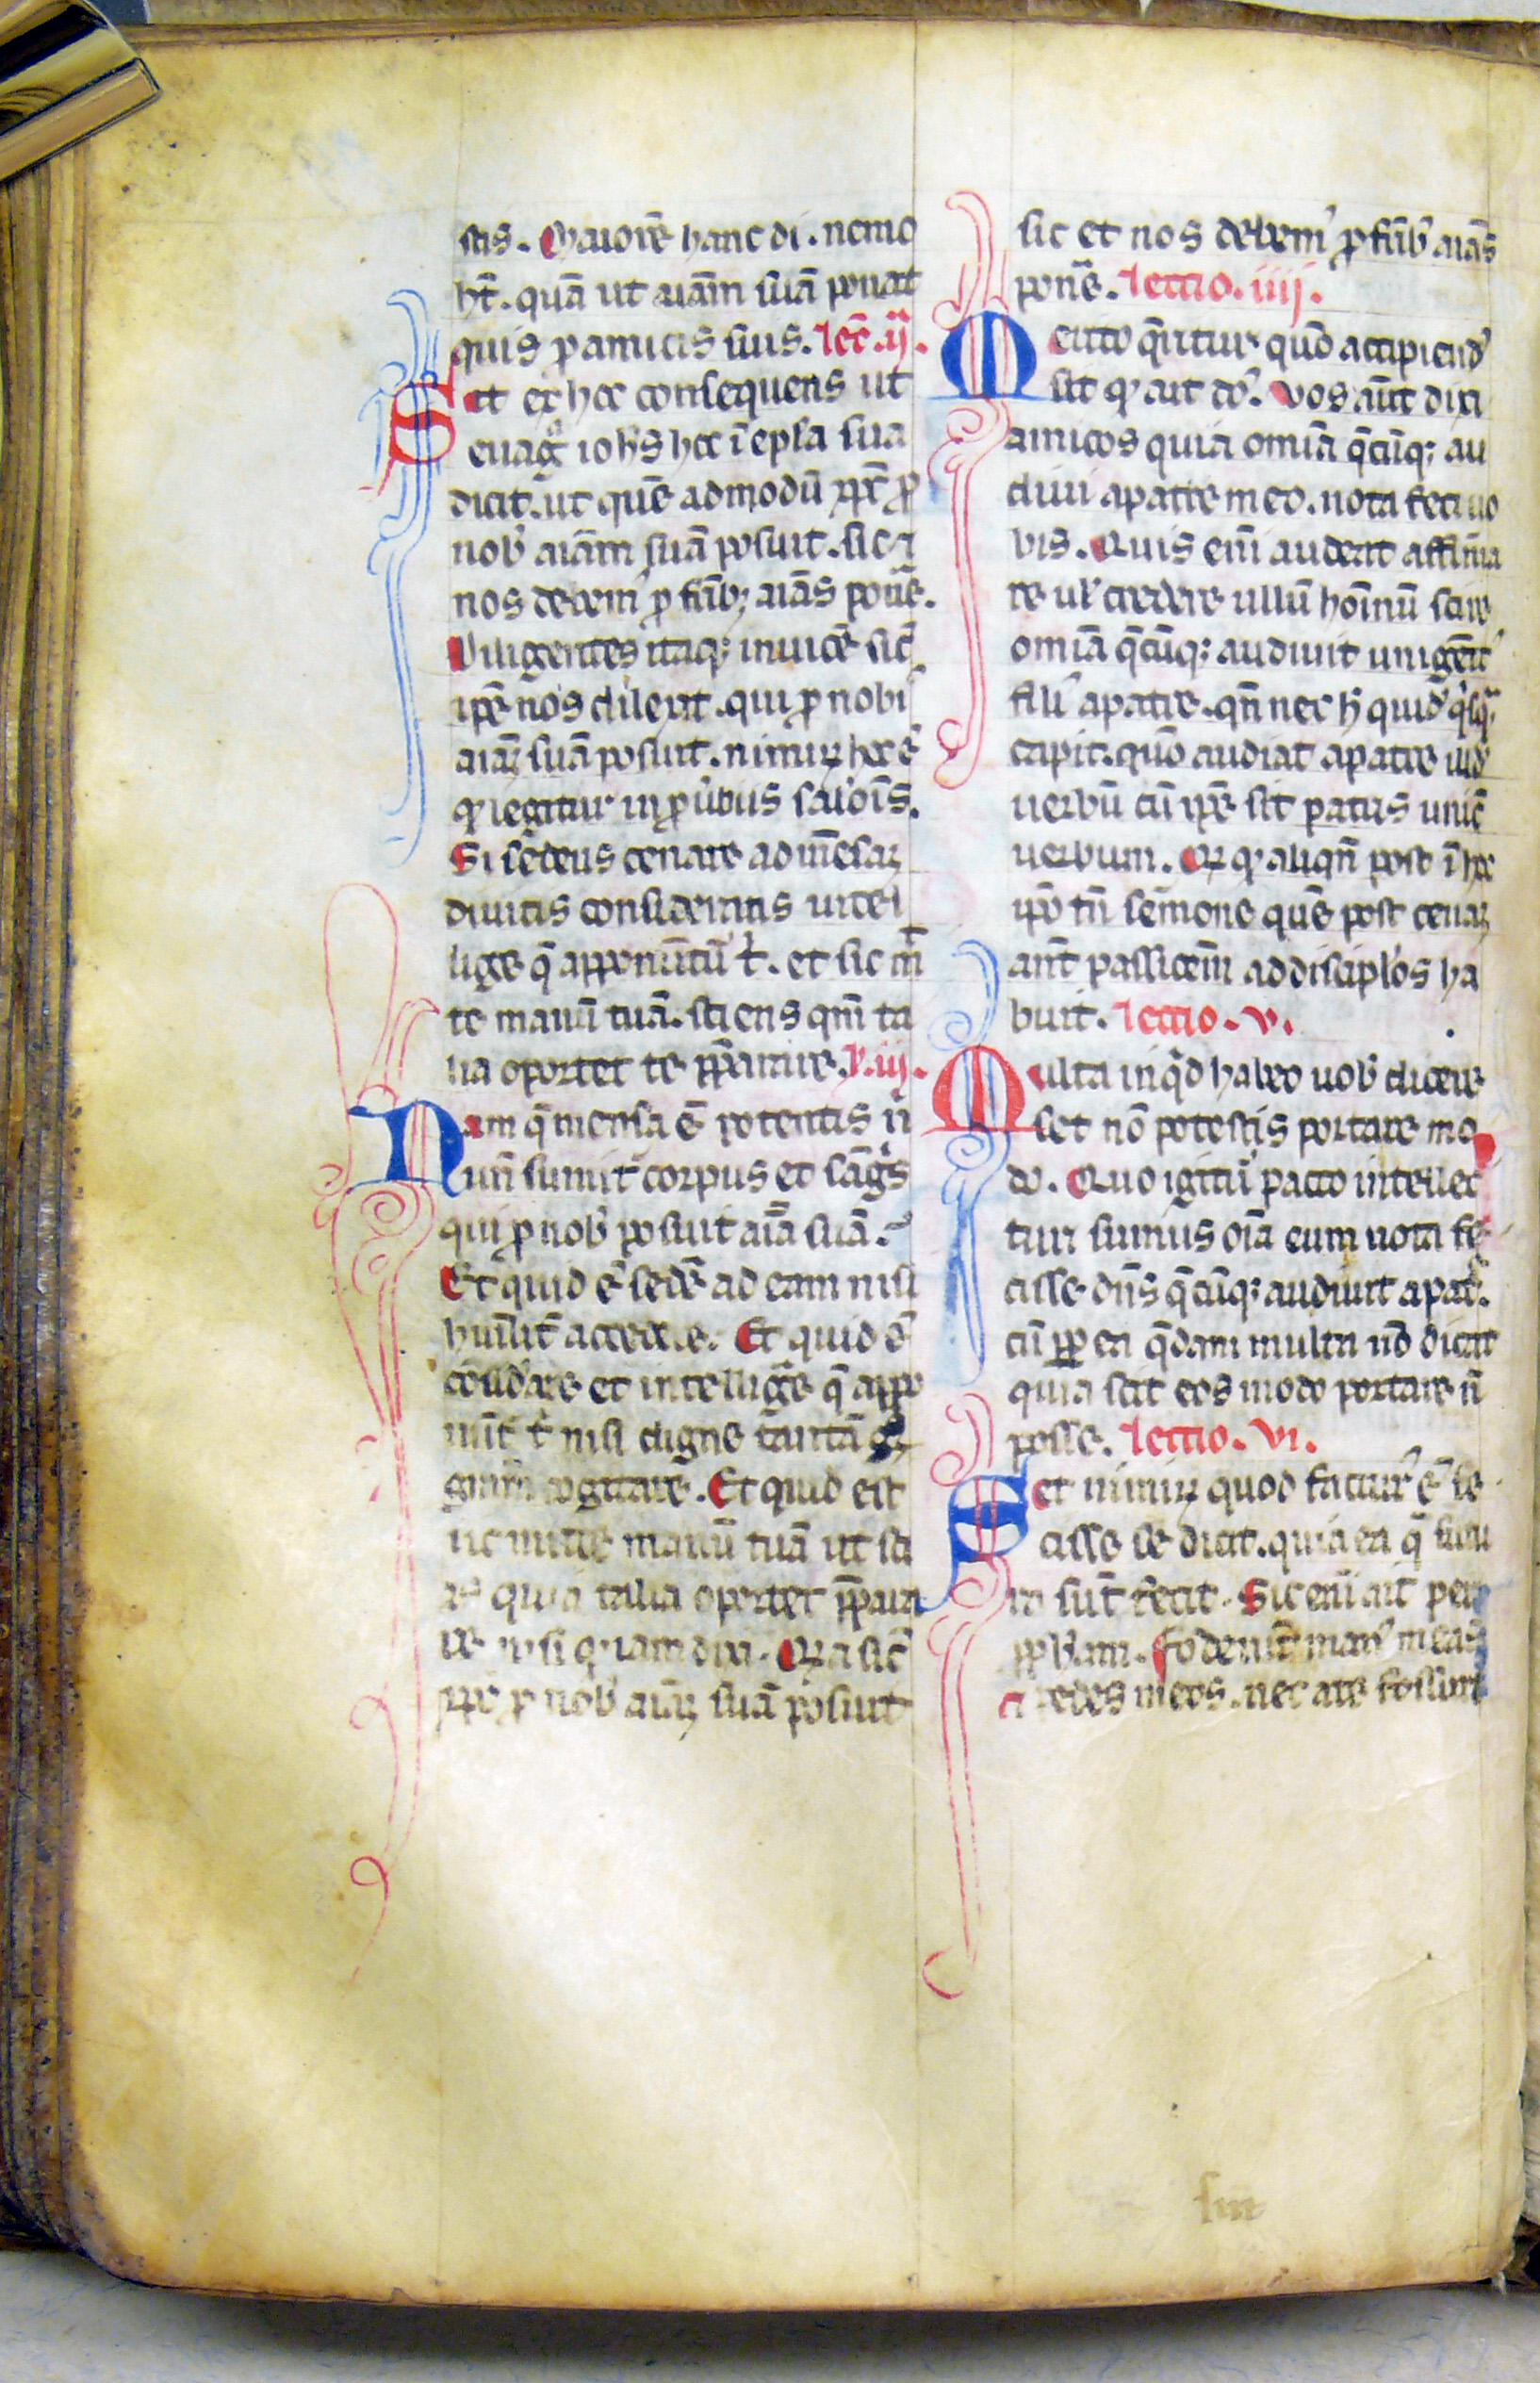 stis. Maiorē hanc di. nemo
ht̄. quā ut aiām suā ponat
quis p amicis suis. lec̄. ij.
Sit ex hoc consequens ut
euāg ioh̄s hec ī epl̄a sua
dicit. ut quē admodū xp̄c p
nob̄ aiām suā posuit. sic ⁊
nos debem᾽ p frīb; aiās ponē.
Diligentes itaq; inuicē sic̄
ip̄e nos dilexit. qui p nobi
aiaꝫ suā posuit. nimiꝝ hoc ē
qđ legitur in puerbiis salōis.
Si sederis cenare ad mēsaꝫ
diuitis consideratis intel
lige q̄ apponūtur t᾽. et sic mit
te manū tuā. sciens qm̄ ta
lia oportet te p̄parare. l. iij.
Nam q̄ mensa ē potentis n̄
un̄ sumit᾽ corpus et sāgis
qui p nob̄ posuit aiā suā.
Et quid ē sedē ad eam nisi
humilit᾽ accedere. Et quid ē
considare et intelligē q̄ appo
nūt᾽ t᾽ nisi digne tantā
grām cogitare. Et quid est
sic mitte manū tuā ut sci
as quia talia oportet p̄para
re nisi q iam dixi. Qꝛ a sic̄
xp̄c p nob̄ aiaꝫ suā posuit
sic et nos debem᾽ p frīb᾽ aiās
ponē. lectio. iiij.
Merito q̄ritur quō accipiend᾽
sit qđ ait dn᾽s. Vos aūt dixi
amicos quia omīa q̄cūq; au
diui a patre meo. nota feci uo
bis. Quis eni᾽ audeat affirma
re ul᾽ credere ullū hoīnū scire
omīa q̄cūq; audiuit unigēit᾽
fili᾽ a patre. qn̄ nec h᾽ quid᾽ q̄sq;
capit. quō audiat a patre ullū
uerbū cū ip̄e sit patris unic̄
uerbum. Qꝛ qđ aliqn̄ post ī hoc
ip̄o tn̄ sermone quē post cenaꝫ
an̄t passionem ad discipl᾽os ha
buit. lectio. v.
Multa inq̄d habeo uob̄ dicere
set nō potestis portare mo
do. Quo igitur pacto intellec
turi sumus oīa eum nota fe
cisse dn̄s q̄cūq; audiuit a pat̄.
cū ꝓp ea q̄dam multa nō dicat
quia scit eos modo portare n̄
posse. lectio. vi.
Set nimiꝝ quod factur᾽ ē se
cisse se dicit. quia ea q̄ futu
ra sūt fecit. Sic eni᾽ ait per
ꝓph̄am. Foderūt man᾽ meas
et pedes meos. nec ate fossuri
sm